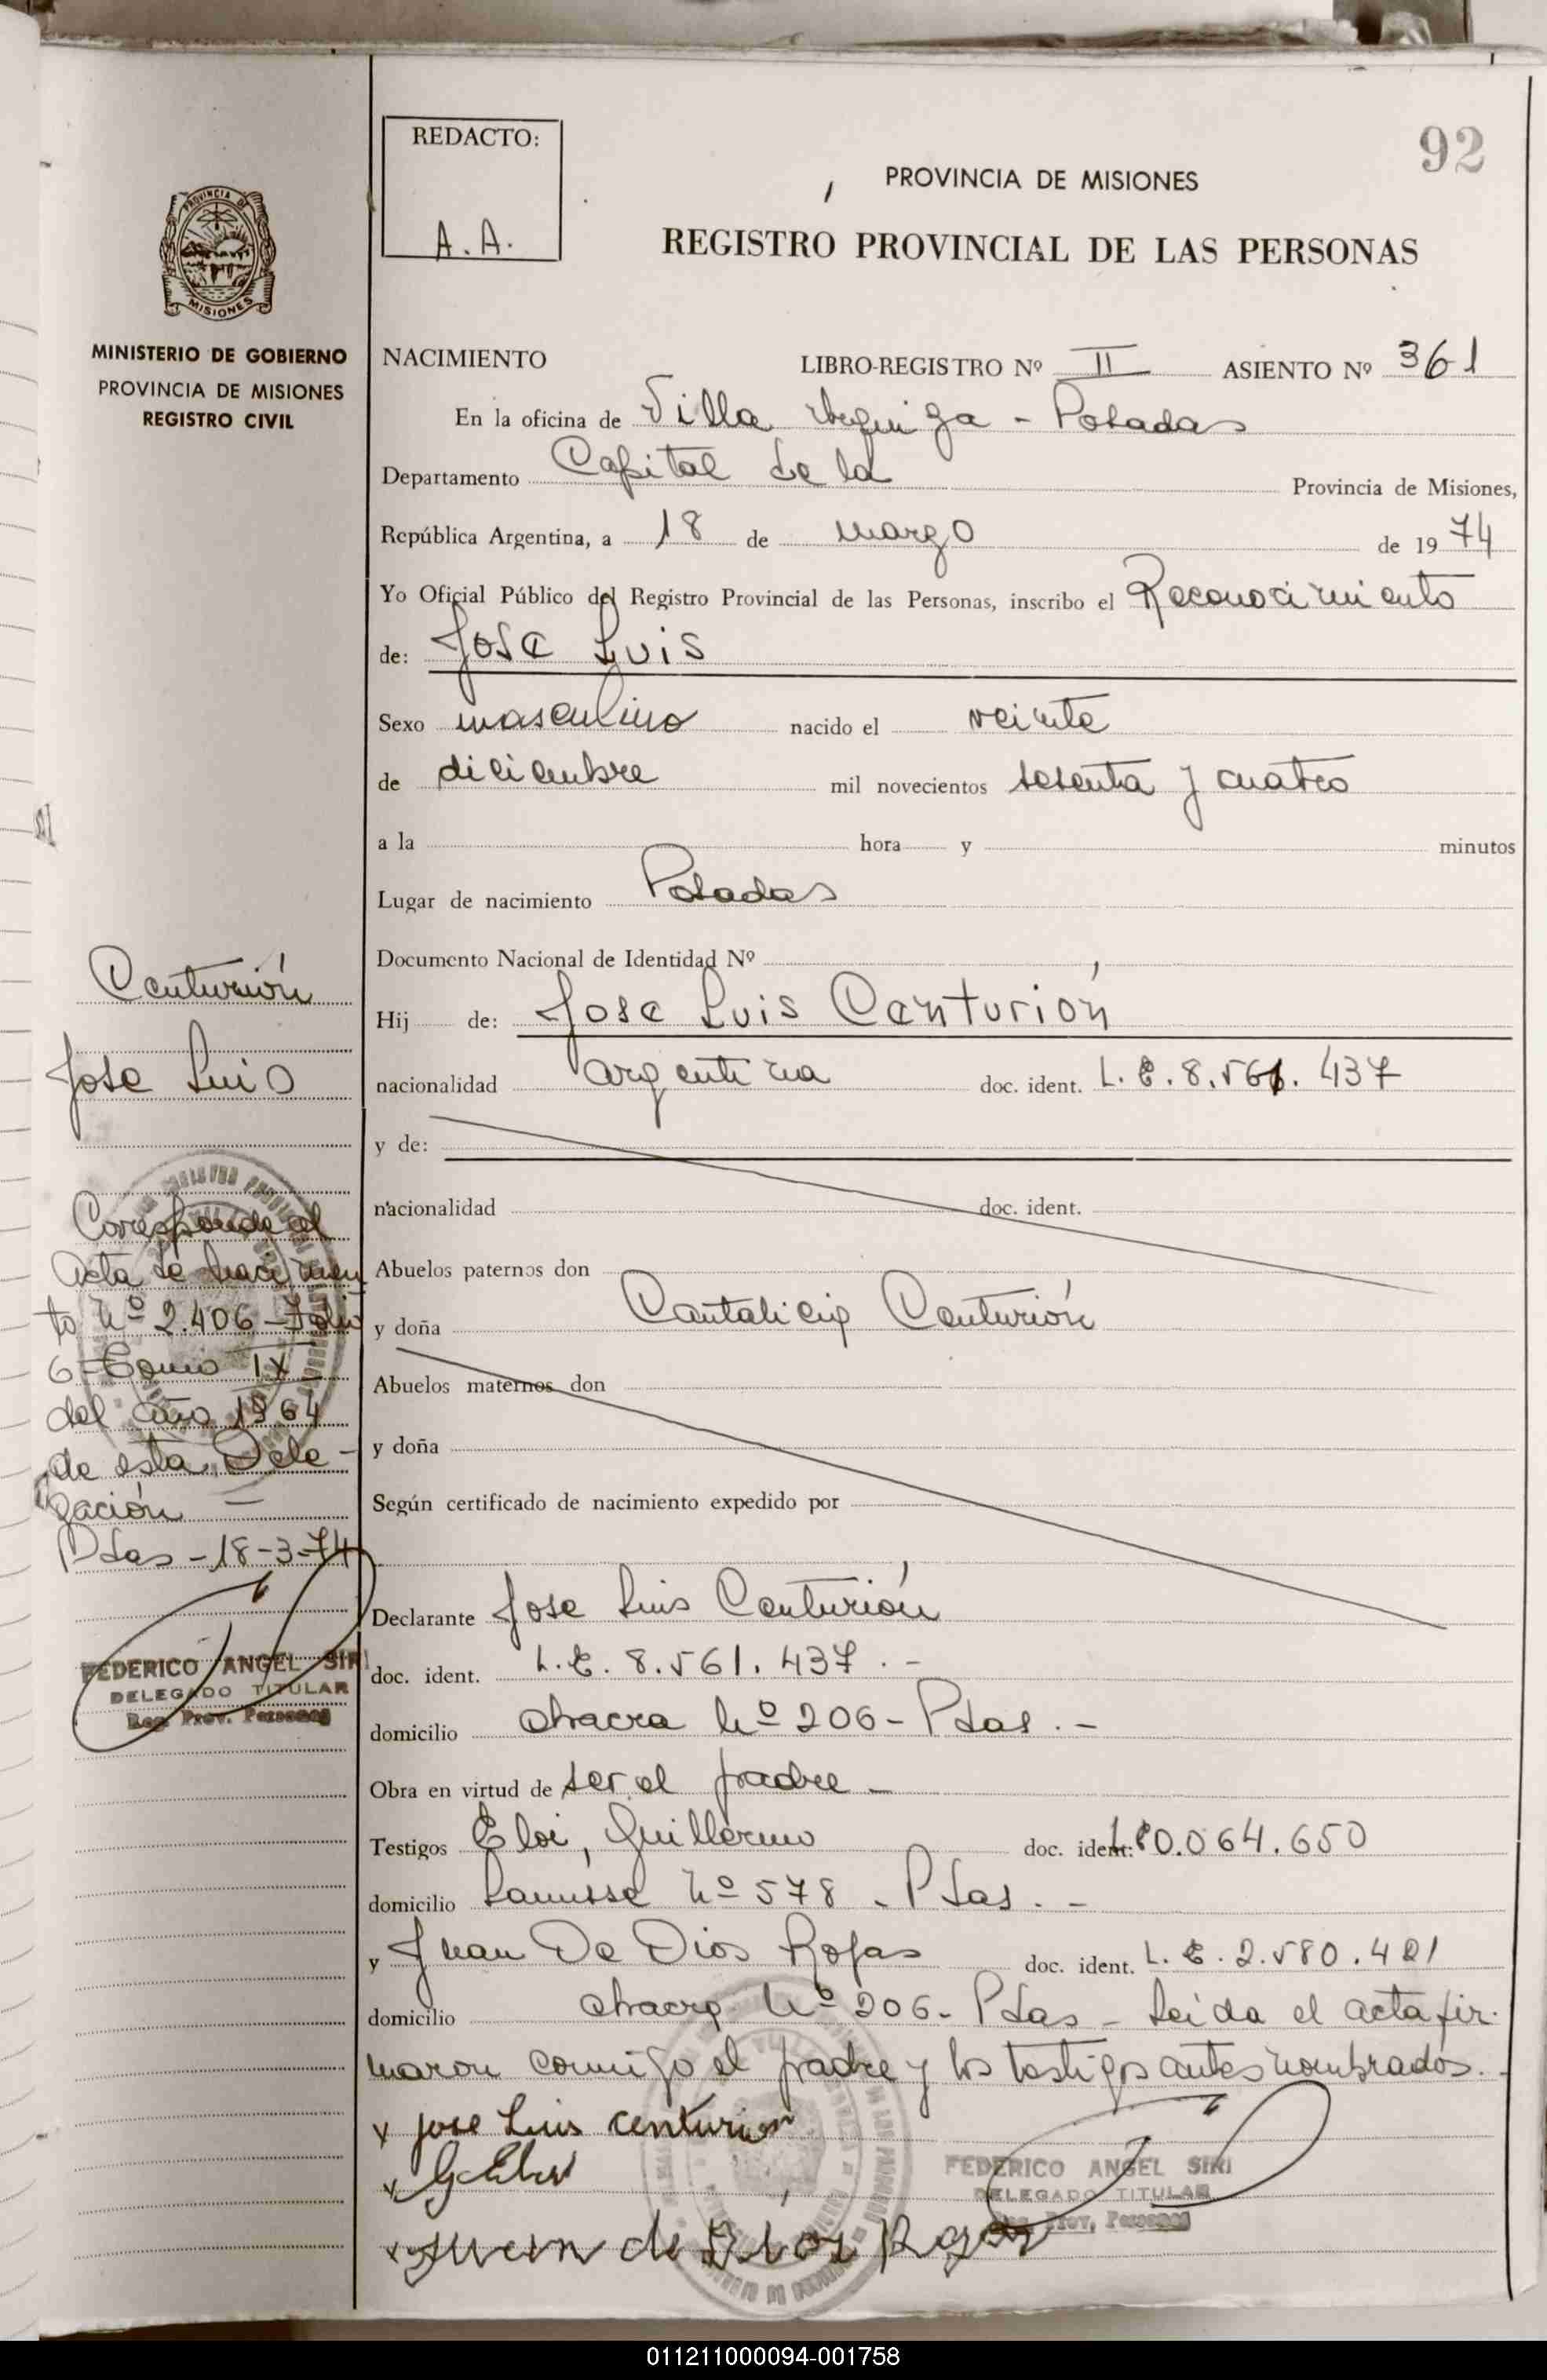 92
REDACTO:
A. A.
PROVINCIA DE MISIONES
REGISTRO PROVINCIAL DE LAS PERSONAS
PROVINCIA DE
MISIONES
MINISTERIO DE GOBIERNO
PROVINCIA DE MISIONES
REGISTRO CIVIL
NACIMIENTO LIBRO-REGISTRO Nº II ASIENTO Nº 361
En la oficina de Villa Urquiza - Posadas
Departamento Capital de la Provincia de Misiones,
República Argentina, a 18 de marzo de 1974
Yo Oficial Público del Registro Provincial de las Personas, inscribo el Reconocimiento
de: Jose Luis
Sexo masculino nacido el veinte
de diciembre mil novecientos sesenta y cuatro
a la hora y minutos
Lugar de nacimiento Posadas
Documento Nacional de Identidad Nº
Hij de: Jose Luis Centurión
nacionalidad argentina doc. ident. L. E. 8.561.437
y de:
nacionalidad doc. ident.
Abuelos paternos don
y doña Cantalicia Centurión
Abuelos maternos don
y doña
Según certificado de nacimiento expedido por
Declarante Jose Luis Centurión
doc. ident. L. E. 8.561.437.-
domicilio chacra Nº 206 - Pdas.-
Obra en virtud de ser el padre -
Testigos Eloi, Guillermo doc. ident: 0.064.650
domicilio Lanusse Nº 578 - Pdas.-
y Juan De Dios Rojas doc. ident. L. E. 2.580.421
domicilio chacra Nº 206 - Pdas - Leida el acta fir-
maron conmigo el padre y los testigos antes nombrados.
x jose Luis centurion
x
x Juan de Dios Rojas
FEDERICO ANGEL SIRI
DELEGADO TITULAR
Reg. Prov. Personas
Centurión
Jose Luis
Corresponde al
Acta de nacimien
to Nº 2.406 - Folio
6 - Tomo IX
del año 1964
de esta Dele-
gación =
Pdas - 18-3-74
FEDERICO ANGEL SIRI
DELEGADO TITULAR
Reg. Prov. Personas
011211000094-001758